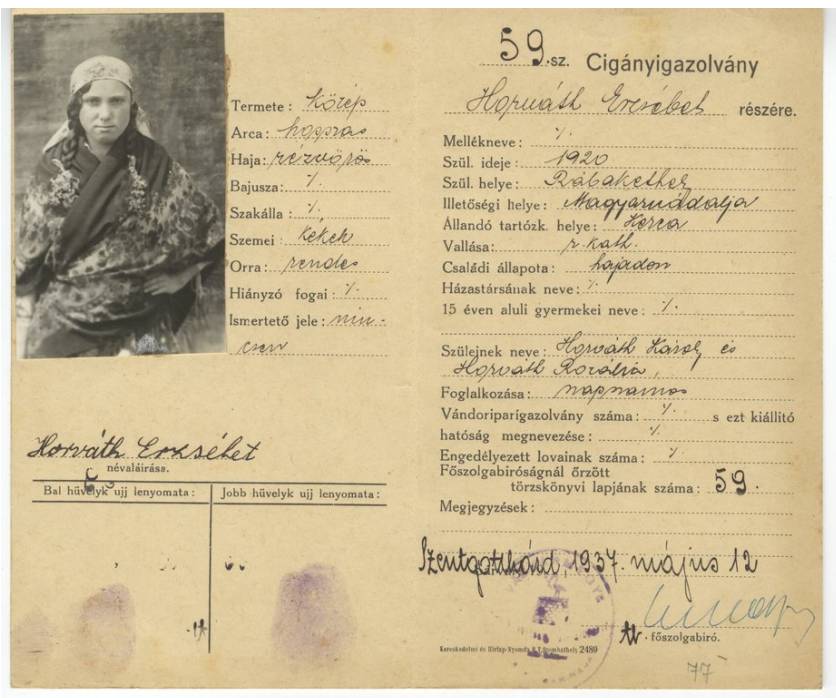 Termete: közép
Arca: hosszas
Haja: rézvörös
Bajusza: ·/·
Szakálla: ·/·
Szemei: kékek
Orra: rendes
Hiányzó fogai: ·/·
Ismertető jele: nin-
csen
Horváth Erzsébet
névaláirása.
Bal hüvelyk ujj lenyomata: Jobb hüvelyk ujj lenyomata:
59.sz. Cigányigazolvány
Horváth Erzsébet részére.
Mellékneve: ·/·
Szül. ideje: 1920
Szül. helye: Rábakethely
Illetőségi helye: Magyarnádalja
Állandó tartózk. helye: Kerca
Vallása: r. kath.
Családi állapota: hajadon
Házastársának neve: ·/·
15 éven aluli gyermekei neve: ·/·
Szülejnek neve: Horváth Károly és
Horváth Rozália,
Foglalkozása: napszámos
Vándoriparigazolvány száma: ·/· s ezt kiállitó
hatóság megnevezése: ·/·
Engedélyezett lovainak száma: ·/·
Főszolgabiróságnál őrzött
törzskönyvi lapjának száma: 59.
Megjegyzések:
Szentgotthárd, 1937. május 12
főszolgabiró.
Kereskedelmi és Hirlap-Nyomda R.T. Szombathely 2489
77